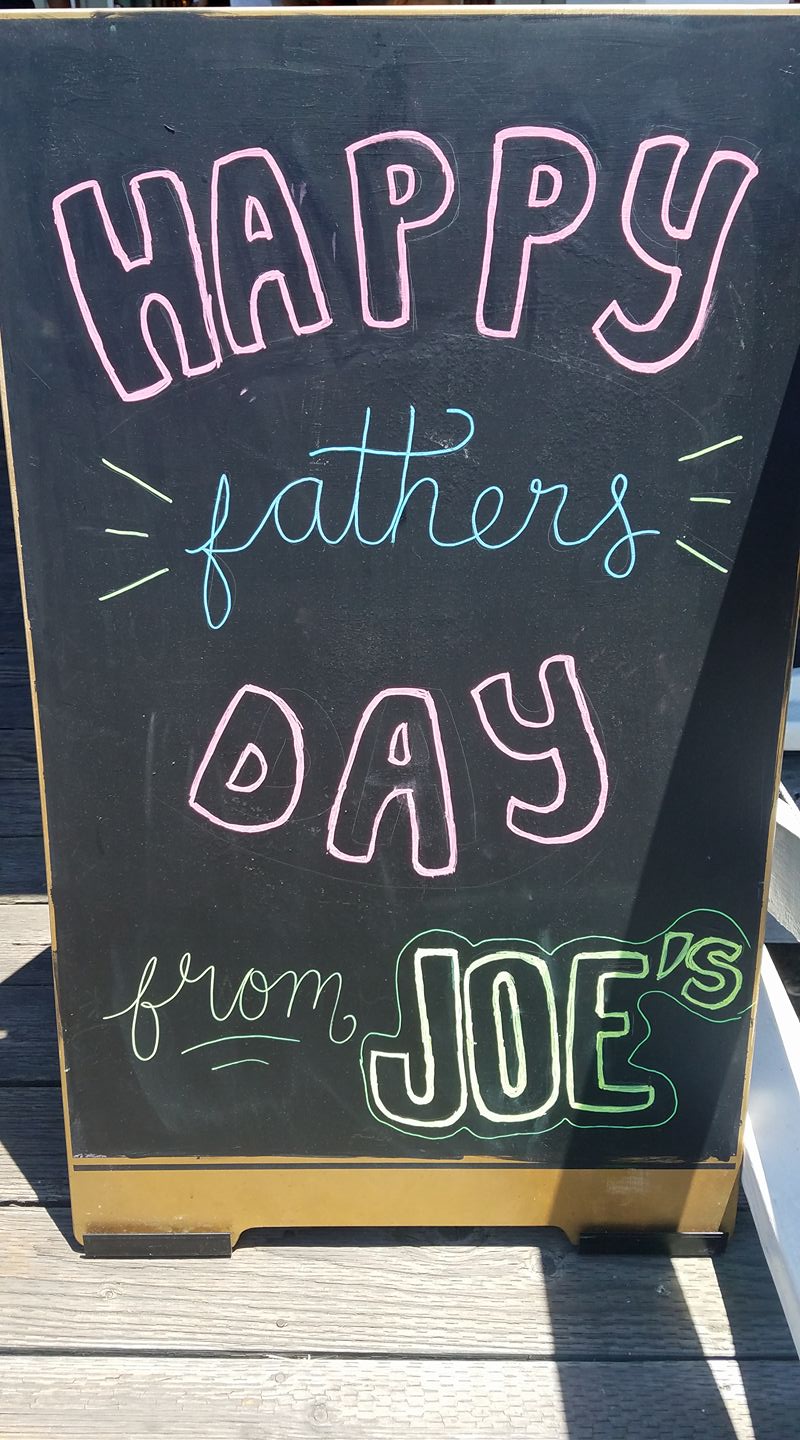 HAPPY
fathers
DAY
from JOE's